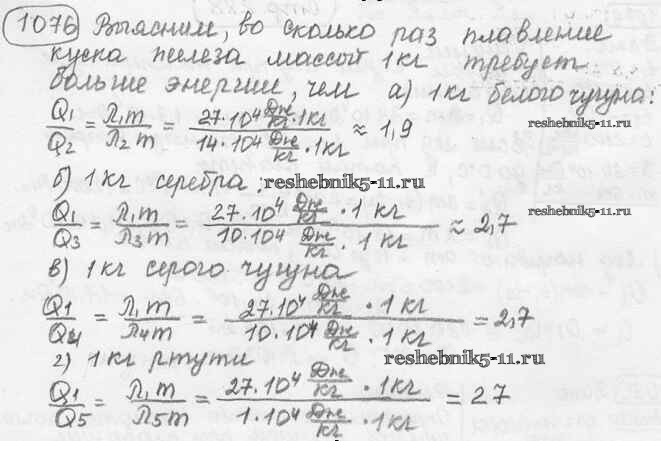 1076 Выясним, во сколько раз плавление
куска железа массой 1 кг требует
больше энергии, чем а) 1 кг белого чугуна:
Q1/Q2 = Л1m/Л2m = 27·10⁴ Дж/кг·1кг / 14·10⁴ Дж/кг·1кг ≈ 1,9
reshebnik5-11.ru
б) 1 кг серебра;
reshebnik5-11.ru
Q1/Q3 = Л1m/Л3m = 27·10⁴ Дж/кг · 1 кг / 10·104 Дж/кг · 1 кг ≈ 2,7
reshebnik5-11.ru
в) 1 кг серого чугуна
Q1/Q4 = Л1m/Л4m = 27·10⁴ Дж/кг · 1 кг / 10·10⁴ Дж/кг · 1 кг = 2,7
г) 1 кг ртути
reshebnik5-11.ru
Q1/Q5 = Л1m/Л5m = 27·10⁴ Дж/кг · 1кг / 1·10⁴ Дж/кг · 1кг = 27